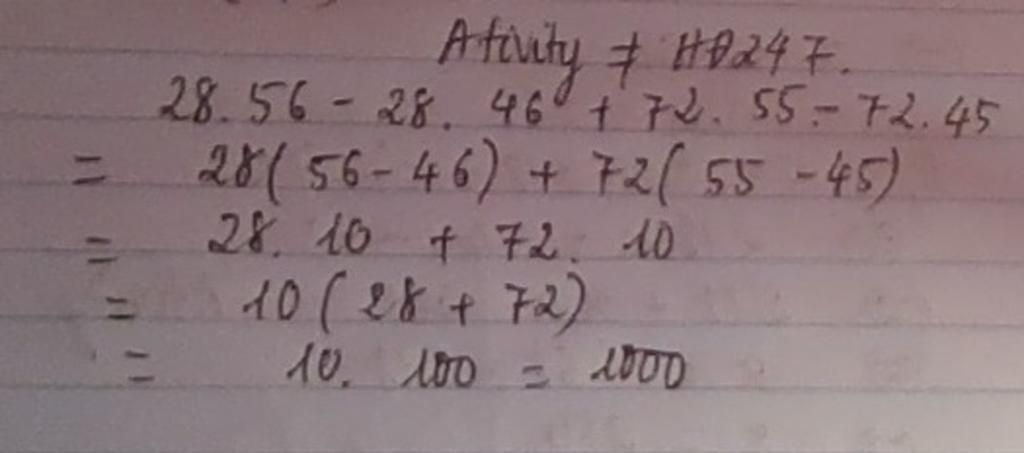 Ativity 7 HĐ247.
28.56 - 28. 46 + 72. 55 - 72.45
= 28( 56 - 46) + 72( 55 - 45)
= 28. 10 + 72. 10
= 10 ( 28 + 72)
= 10. 100 = 1000